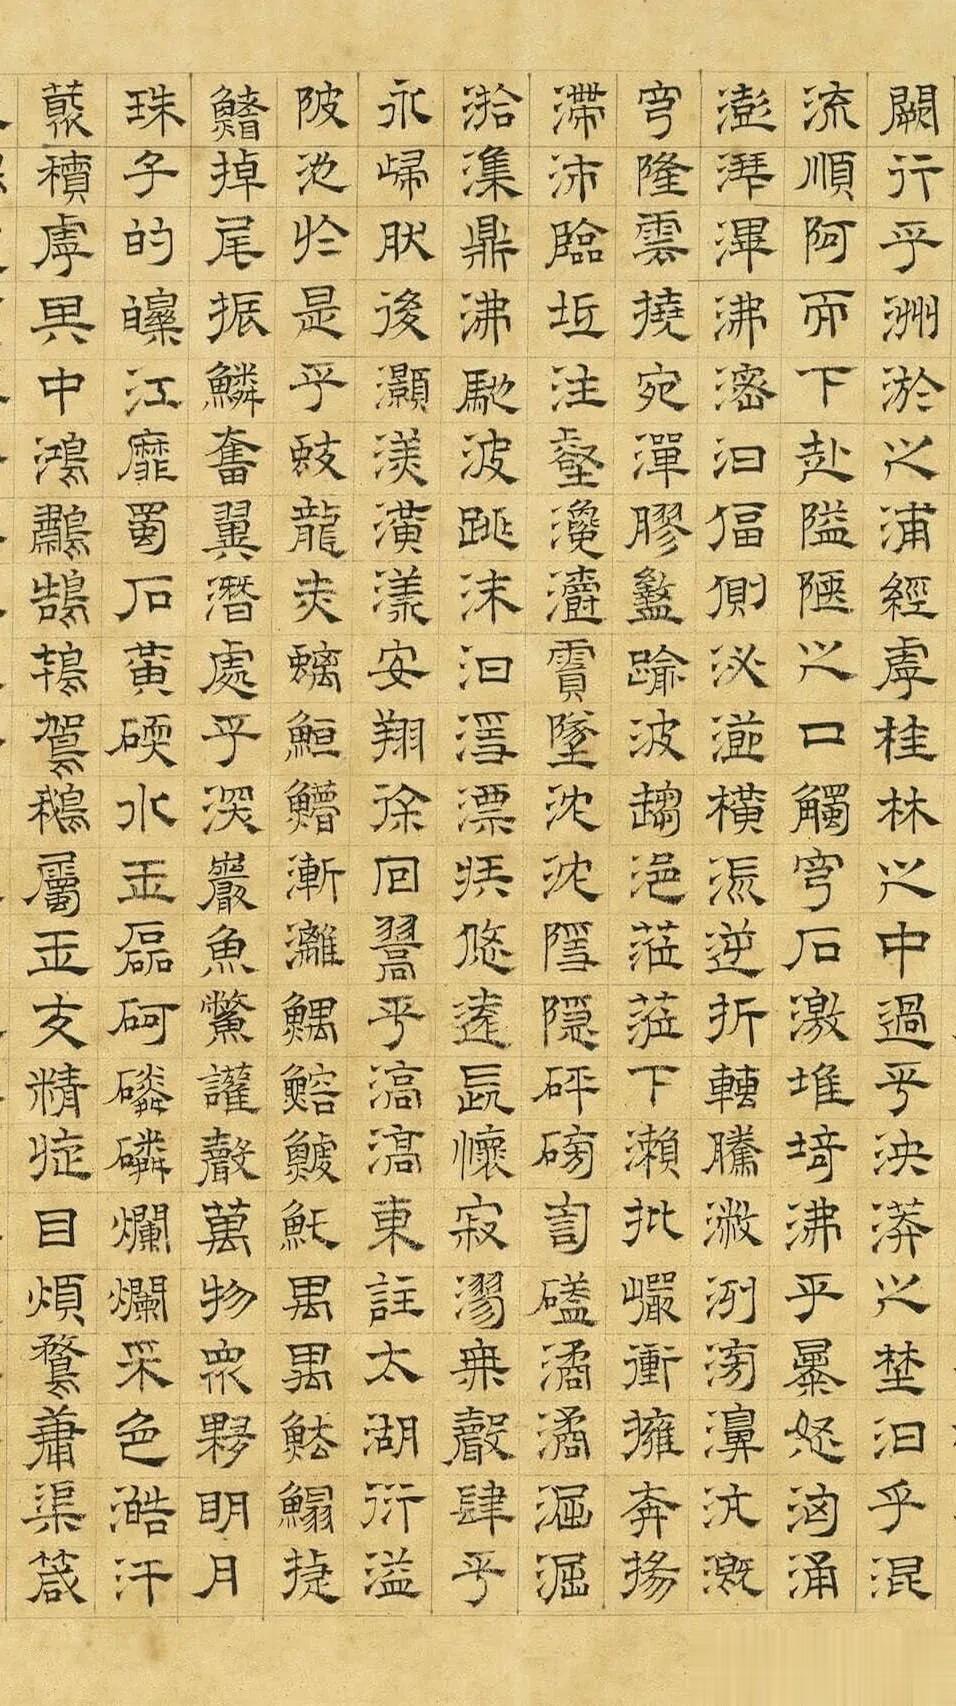 闕行乎洲淤之浦經虖桂林之中過乎泱漭之埜汩乎混
流順阿而下赴隘陿之口觸穹石激堆埼沸乎暴怒洶涌
澎湃滭沸滵汩偪側泌瀄橫流逆折轉騰潎洌滂濞沆溉
穹隆雲撓宛潬膠盭踰波趨浥莅莅下瀨批巖衝擁奔揚
滯沛臨坻注壑瀺灂霣墜沈沈隱隱砰磅訇磕潏潏淈淈
湁潗鼎沸馳波跳沫汩㴔漂疾悠遠長懷寂漻無聲肆乎
永歸肰後灝渼潢漾安翔徐回翯乎滈滈東註太湖衍溢
陂池於是乎蛟龍赤螭䱭䲛漸灕鰅鰫鰬魠禺禺魼鰨揵
鰭掉尾振鱗奮翼潛處乎深巖魚鱉讙聲萬物眾夥明月
珠子的皪江靡蜀石黃碝水玉磊砢磷磷爛爛采色澔汗
藂積虖其中鴻鷫鵠鴇鴐鵝屬玉交精旋目煩鶩庸渠箴